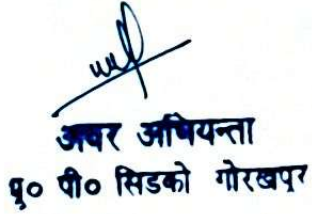 अवर अभियन्ता
यू० पी० सिडको गोरखपुर